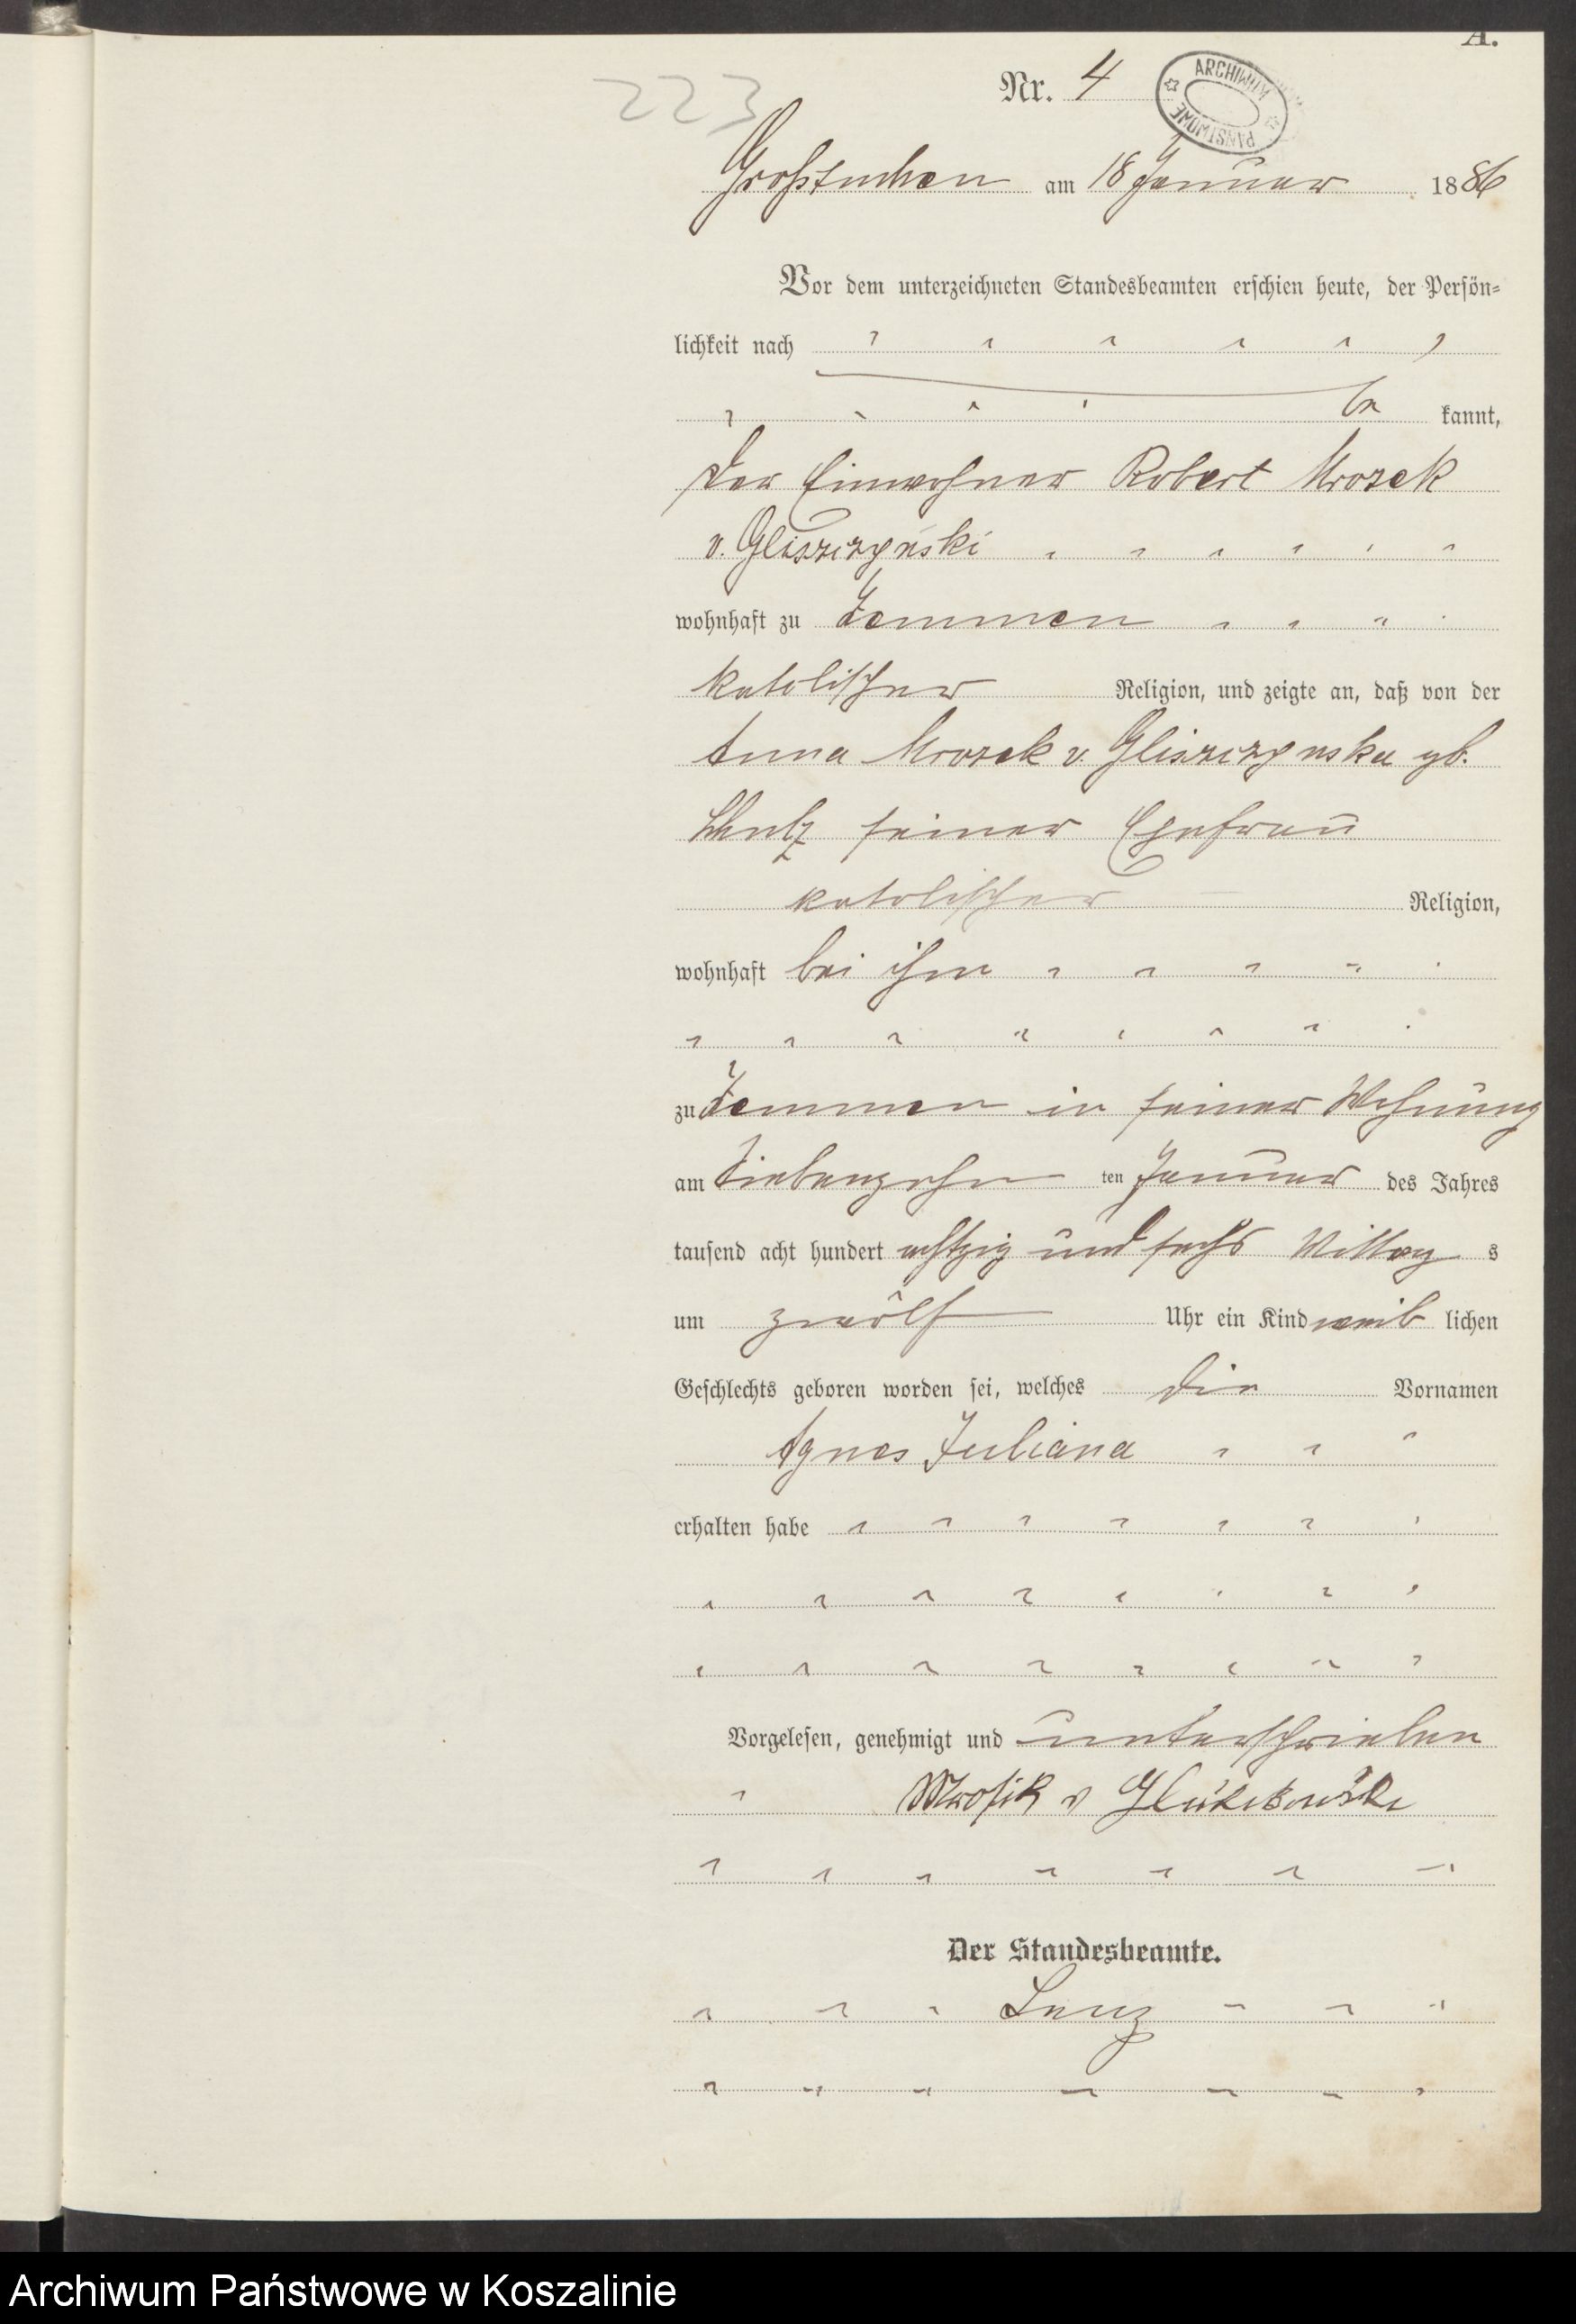 A.
223
Nr. 4
ARCHIWUM PAŃSTWOWE
Großtuchen am 18 Januar 1886
Vor dem unterzeichneten Standesbeamten erschien heute, der Persön-
lichkeit nach
be kannt,
der Einwohner Robert Mrozek
v. Gliszczyński
wohnhaft zu Zemmen
katolischer Religion, und zeigte an, daß von der
Anna Mrozek v. Gliszczynska gb.
seiner Ehefrau
katolischer Religion,
wohnhaft bei ihm
zu Zemmen in seiner Wohnung
am siebenzehn ten Januar des Jahres
tausend acht hundert achtzig und sechs Mittag s
um zwölf Uhr ein Kind weib lichen
Geschlechts geboren worden sei, welches die Vornamen
Agnes Juliana
erhalten habe
Vorgelesen, genehmigt und unterschrieben
Mrosik v
Der Standesbeamte.
Lenz
Archiwum Państwowe w Koszalinie